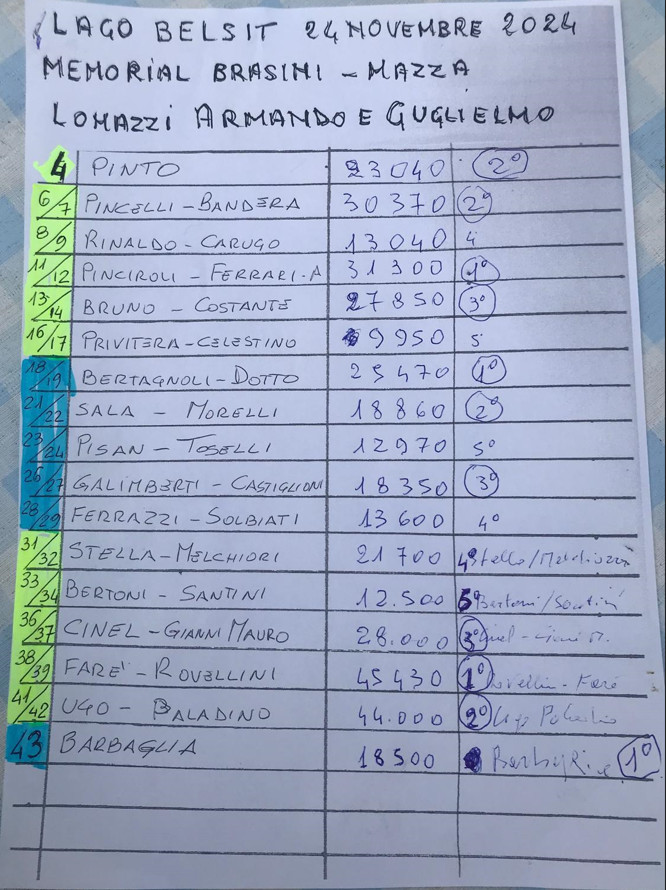 LAGO BELSIT 24 NOVEMBRE 2024
MEMORIAL BRASINI - MAZZA
LOMAZZI ARMANDO E GUGLIELMO
4 PINTO 23040 2°
6/7 PINCELLI - BANDERA 30370 2°
8/9 RINALDO - CARUGO 13040 4
11/12 PINCIROLI - FERRARI.A 31300 1°
13/14 BRUNO - COSTANTE 27850 3°
16/17 PRIVITERA - CELESTINO 9950 5
18/19 BERTAGNOLI - DOTTO 25470 1°
21/22 SALA - MORELLI 18860 2°
23/24 PISAN - TOSELLI 12970 5°
26/27 GALIMBERTI - CASTIGLIONI 18350 3°
28/29 FERRAZZI - SOLBIATI 13600 4°
31/32 STELLA - MELCHIORI 21700 4° Stella/
33/34 BERTONI - SANTINI 12.500 5° Bertoni/Santini
36/37 CINEL - GIANNI MAURO 28.000 3° Cinel -
38/39 FARE' - ROVELLINI 45430 1° Rovellini - Farè
41/42 UGO - BALADINO 44.000 2° Ugo
43 BARBAGLIA 18500 1°